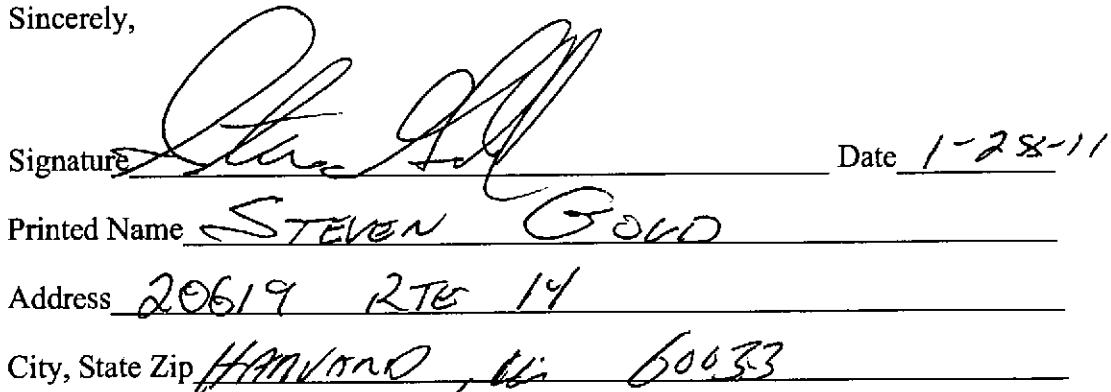 Sincerely,
Signature Steven Gold Date 1-28-11
Printed Name STEVEN GOLD
Address 20619 RTE 14
City, State Zip HARVARD, 60033